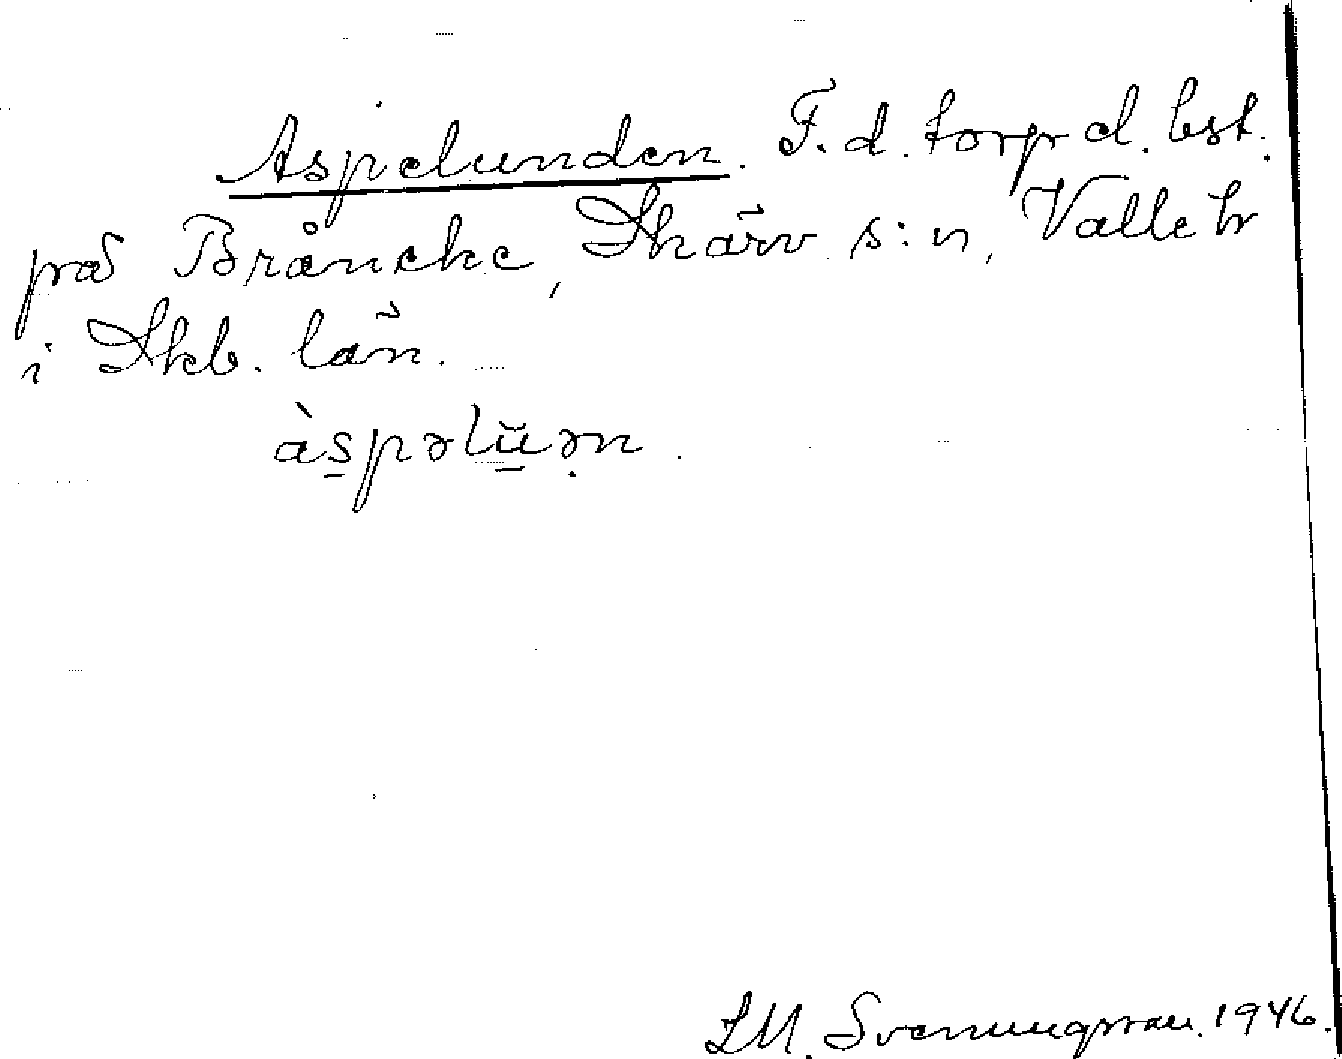 Aspelunden. F. d. torp el. bst.
på Bråneke, Skärv s:n, Valle hr
i Skb. län.
às̱pəlŭ̱ən.
LM. Svenungsson. 1946.